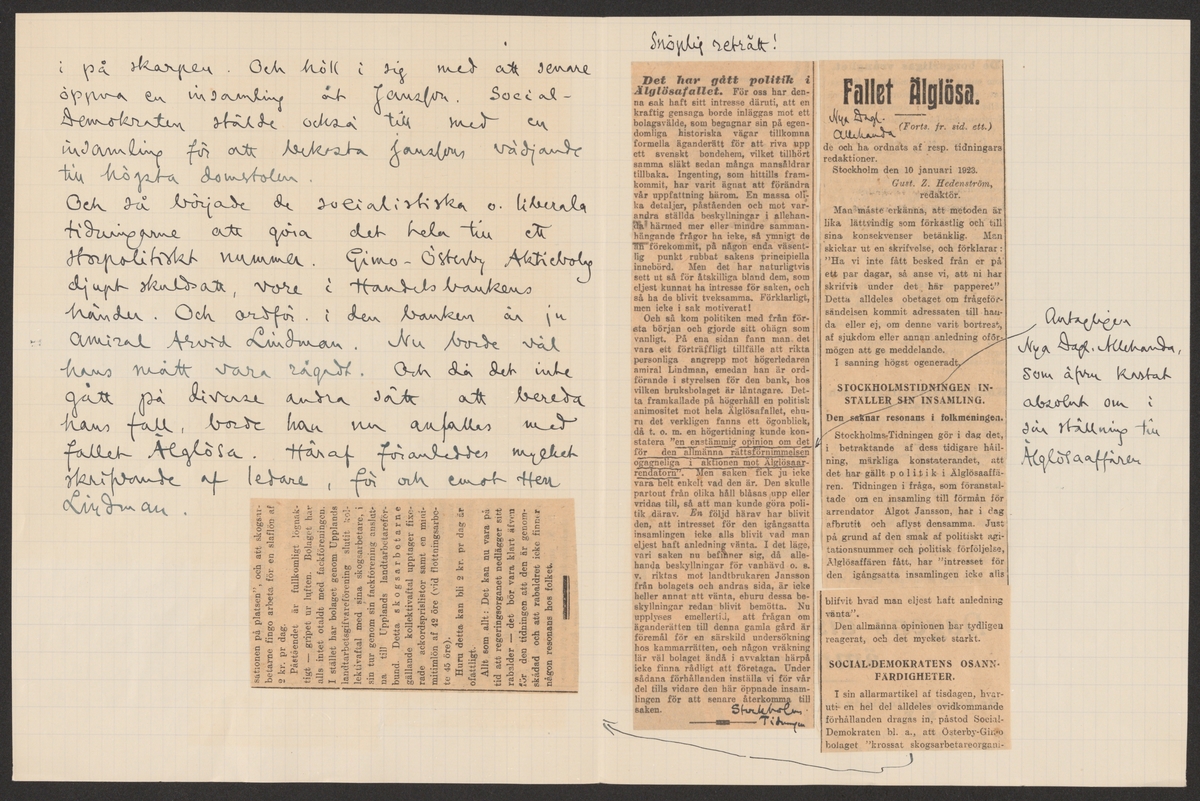 i på skarpen. Och höll i sig med att senare
öppna en insamling åt Jansson. Social-
Demokraten stälde också till med en
insamling för att bekosta Janssons vädjande
till högsta domstolen.
Och så började de socialistiska o. liberala
tidningarne att göra det hela till ett
storpolitiskt nummer. Gimo-Österby Aktiebolag
djupt skuldsatt, vore i Handelsbankens
händer. Och ordför. i den banken är ju
amiral Arvid Lindman. Nu borde väl
hans mått vara rågadt. Och då det inte
gått på diverse andra sätt att bereda
hans fall, borde han nu anfallas med
fallet Älglösa. Häraf föranleddes mycket
skrifvande af ledare, för och emot Herr
Lindman.
sationen på platsen", och att skogsar-
betarne fingo arbeta för en slaflön af
2 kr. pr dag.
Påståendet är fullkomligt lögnak-
tigt — gripet ur luften. Bolaget har
alls intet otaladt med fackföreningen.
I stället har bolaget genom Upplands
landtarbetsgifvareförening slutit kol-
lektivaftal med sina skogsarbetare, i
sin tur genom sin fackförening anslut-
na till Upplands landtarbetareför-
bund. Detta skogsarbetarne
gällande kollektivaftal upptager fixe-
rade ackordsprislistor samt en mini-
mitimlön af 42 öre (vid flottningsarbo-
te 45 öre).
Huru detta kan bli 2 kr. pr dag är
ofattligt.
Allt som allt: Det kan nu vara på
tid att regeringsorganet nedlägger sitt
rabalder — det bör vara klart äfven
för den tidningen att den är genom-
skådad och att rabaldret icke finnar
någon resonans hos folket.
Snöplig reträtt!
Det har gått politik i
Älglösafallet. För oss har den-
na sak haft sitt intresse däruti, att en
kraftig gensaga borde inläggas mot ett
bolagsvälde, som begagnar sin på egen-
domliga historiska vägar tillkomna
formella äganderätt för att riva upp
ett svenskt bondehem, vilket tillhört
samma släkt sedan många mansåldrar
tillbaka. Ingenting, som hittills fram-
kommit, har varit ägnat att förändra
vår uppfattning härom. En massa oli-
ka detaljer, påståenden och mot var-
andra ställda beskyllningar i allehan-
da härmed mer eller mindre samman-
hängande frågor ha icke, så ymnigt de
än förekommit, på någon enda väsent-
lig punkt rubbat sakens principiella
innebörd. Men det har naturligtvis
sett ut så för åtskilliga bland dem, som
eljest kunnat ha intresse för saken, och
så ha de blivit tveksamma. Förklarligt,
men icke i sak motiverat!
Och så kom politiken med från för-
sta början och gjorde sitt ohägn som
vanligt. På ena sidan fann man det
vara ett förträffligt tillfälle att rikta
personliga angrepp mot högerledaren
amiral Lindman, emedan han är ord-
förande i styrelsen för den bank, hos
vilken bruksbolaget är låntagare. Det-
ta framkallade på högerhåll en politisk
animositet mot hela Älglösafallet, ehu-
ru det verkligen fanns ett ögonblick,
då t. o. m. en högertidning kunde kon-
statera "en enstämmig opinion om det
för den allmänna rättsförnimmelsen
oägneliga i aktionen mot Älglösaar-
rendatorn". Men saken fick ju icke
vara helt enkelt vad den är. Den skulle
partout från olika håll blåsas upp eller
vridas till, så att man kunde göra poli-
tik därav. En följd härav har blivit
den, att intresset för den igångsatta
insamlingen icke alls blivit vad man
eljest haft anledning vänta. I det läge,
vari saken nu befinner sig, då alle-
handa beskyllningar för vanhävd o. s.
v. riktas mot landtbrukaren Jansson
från bolagets och andras sida, är icke
heller annat att vänta, ehuru dessa be-
skyllningar redan blivit bemötta. Nu
upplyses emellertid, att frågan om
äganderätten till denna gamla gård är
föremål för en särskild undersökning
hos kammarrätten, och någon vräkning
lär väl bolaget ändå i avvaktan härpå
icke finna rådligt att företaga. Under
sådana förhållanden inställa vi för vår
del tills vidare den här öppnade insam-
lingen för att senare återkomma till
saken.
Stockholms
Tidningen
Fallet Älglösa.
Nya Dagl.
Allehanda
(Forts. fr. sid. ett.)
de och ha ordnats af resp. tidningars
redaktioner.
Stockholm den 10 januari 1923.
Gust. Z. Hedenström,
redaktör.
Man måste erkänna, att metoden är
lika lättvindig som förkastlig och till
sina konsekvenser betänklig. Man
skickar ut en skrifvelse, och förklarar:
"Ha vi inte fått besked från er på
ett par dagar, så anse vi, att ni har
skrifvit under det här papperet"
Detta alldeles obetaget om frågeför-
sändelsen kommit adressaten till han-
da eller ej, om denne varit bortrest,
af sjukdom eller annan anledning oför-
mögen att ge meddelande.
I sanning högst ogeneradt.
STOCKHOLMSTIDNINGEN IN-
STÄLLER SIN INSAMLING.
Den saknar resonans i folkmeningen.
Stockholms-Tidningen gör i dag det,
i betraktande af dess tidigare håll-
ning, märkliga konstaterandet, att
det har gått politik i Älglösaaffä-
ren. Tidningen i fråga, som föranstal-
tade om en insamling till förmån för
arrendator Algot Jansson, har i dag
afbrutit och aflyst densamma. Just
på grund af den smak af politiskt agi-
tationsnummer och politisk förföljelse,
Älglösaaffären fått, har "intresset för
den igångsatta insamlingen icke alls
blifvit hvad man eljest haft anledning
vänta".
Den allmänna opinionen har tydligen
reagerat, och det mycket starkt.
SOCIAL-DEMOKRATENS OSANN-
FÄRDIGHETER.
I sin allarmartikel af tisdagen, hvar-
uti en hel del alldeles ovidkommande
förhållanden dragas in, påstod Social-
Demokraten bl. a., att Österby-Gimo
bolaget "krossat skogsarbetareorgani-
Antagligen
Nya Dagl. Allehanda,
som äfven kastat
absolut om i
sin ställning till
Älglösaaffären